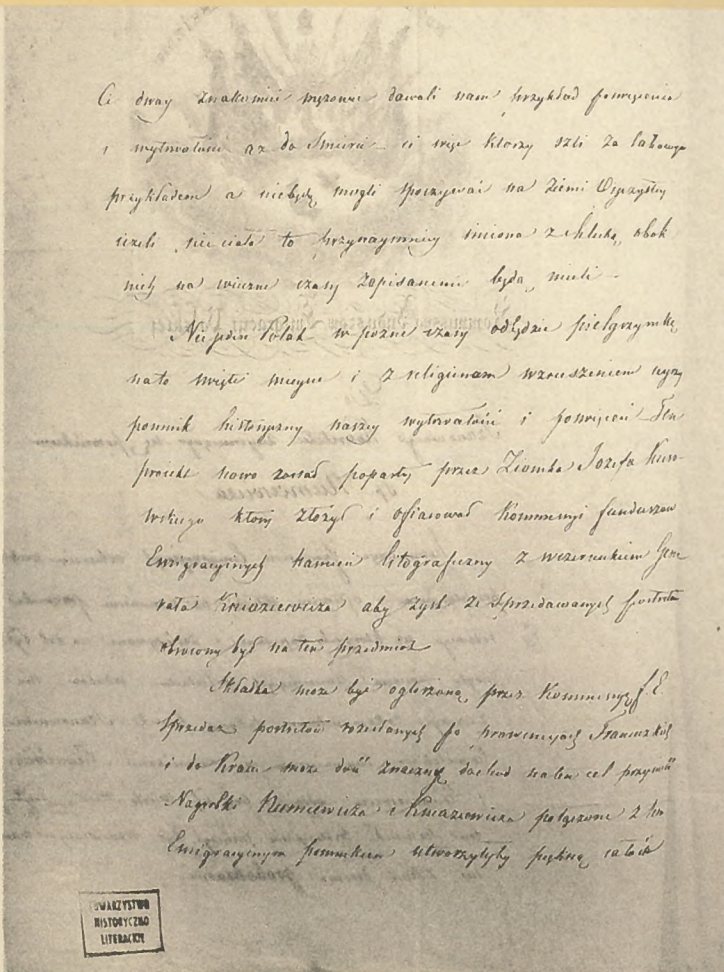 Ci dway znakomici mężowie dawali nam przykład poswięcenia
i wytrwałości az do smierci – ci więc ktorzy szli za takowym
przykładem a niebędą mogli spoczywać na Ziemi Oyczystey
ieżeli nie ciała to przynaymniey imiona z chlubą obok
nich na wieczne czasy zapisanemi będą mieli –
Nie jeden Polak w pozne czasy odbędzie pielgrzymkę
na to swięte mieysce i z religiinem wzruszeniem uyrzy
pomnik historyczny naszey wytrwałości i poswięceń Ten
proiekt nowo został poparty przez Ziomka Jozefa
ktory złożył i ofiarował Kommissyi funduszow
Emigracyinych kamien litograficzny z wizerunkiem Gene
rała Kniaziewicza aby zysk ze sprzedawanych portretow
obrocony był na ten przedmiot
Składka moze być ogłoszoną przez Kommissyę f. E.
Sprzedaz portretow rozesłanych po prowincyach Francuzkich
i do Kraiu moze dać znaczny dochod na ten cel
Nagrobki Niemcewicza i Kniaziewicza połączone z tem
Emigracyinym pomnikiem utworzyłyby piękną całość
TOWARZYSTWO
HISTORYCZNO
LITERACKIE